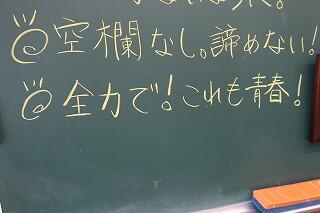 空欄なし。諦めない!
全力で!これも青春!